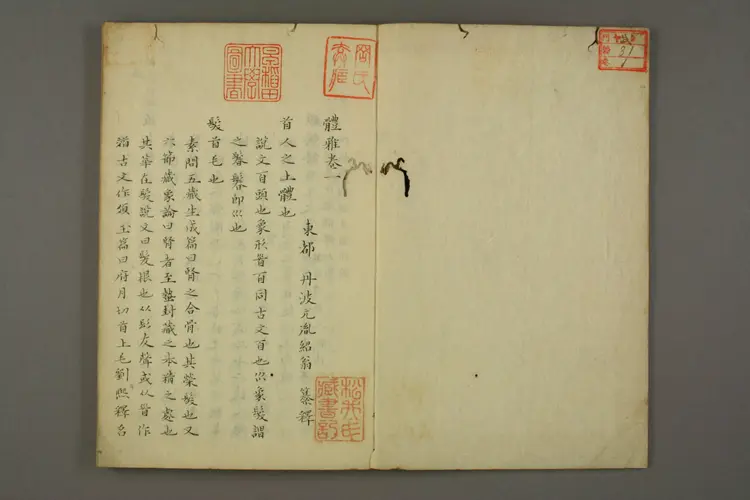 31
1
體雅卷一
東都 丹波元胤紹翁 纂釋
首人之上體也
說文𦣻頭也象形首𦣻同古文𦣻也巛象髮謂
之鬊鬊卽巛也
髮首毛也
素問五藏生成篇曰腎之合骨也其榮髮也又
六節藏象論曰腎者主蟄封藏之本精之處也
其華在髮說文曰髮根也从髟犮聲或从首作
古文作玉篇曰府月切首上毛劉熙釋名
松井氏
藏書記